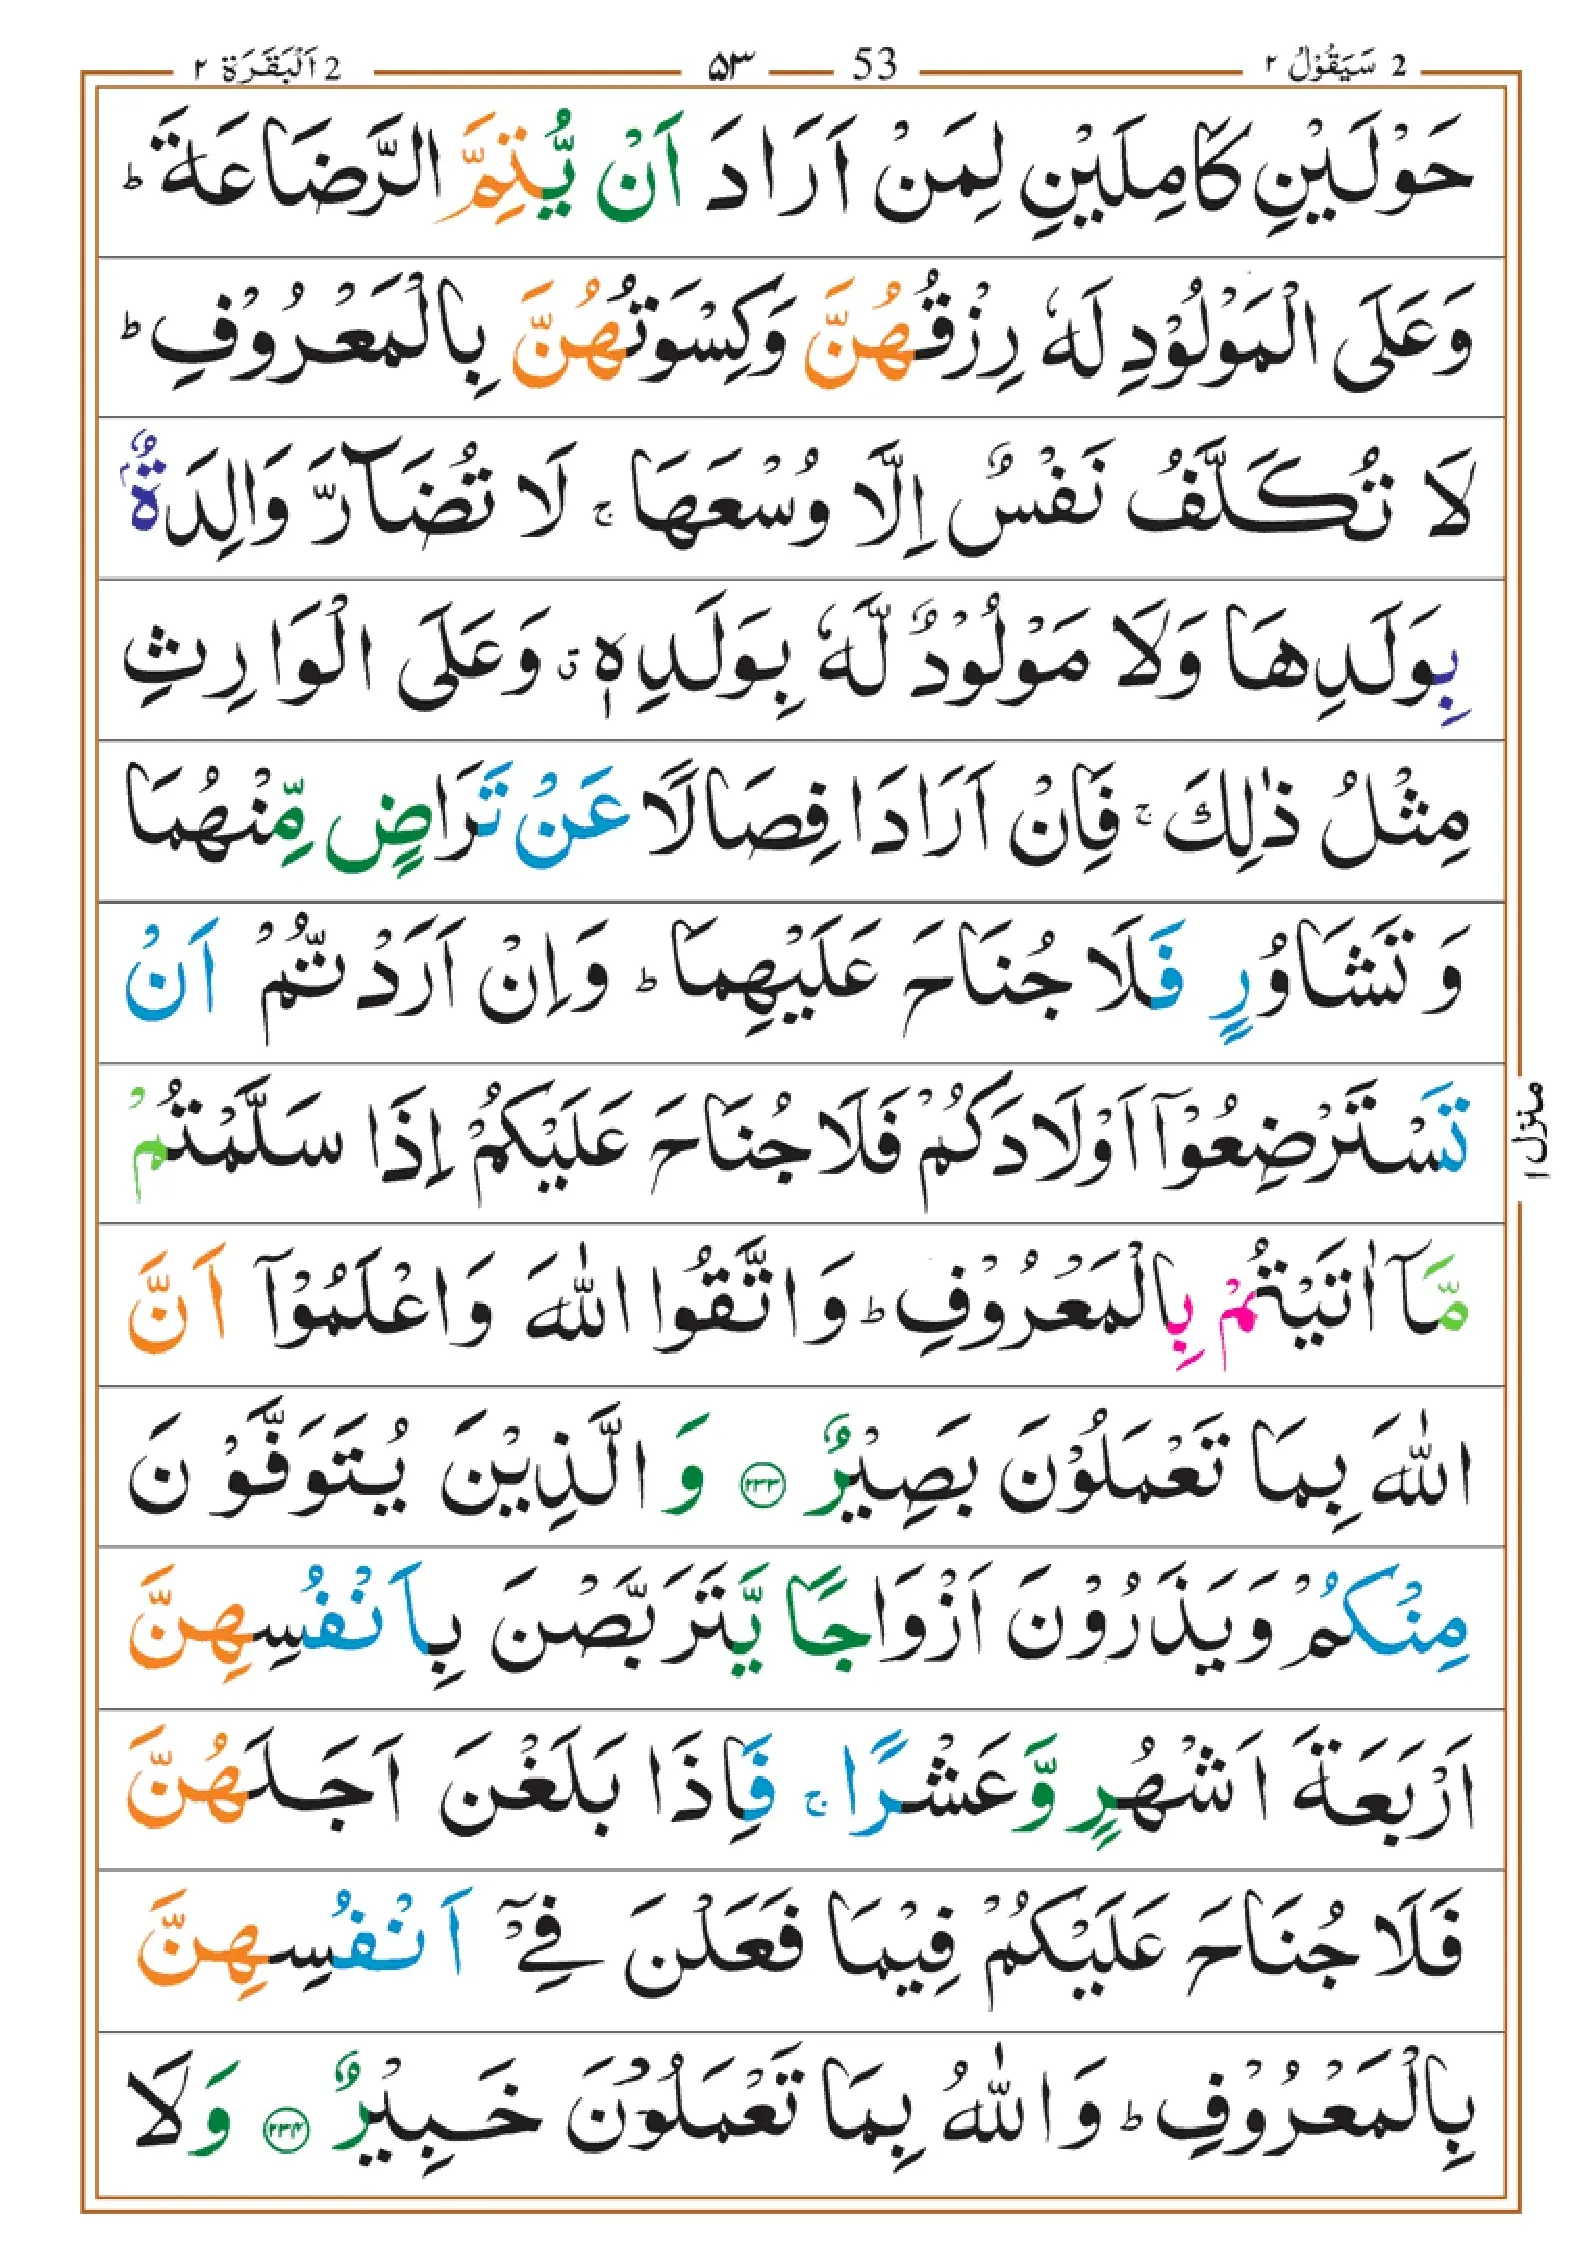 2 سَيَقُوْلُ ٢ 53 ٥٣ 2 اَلْبَقَرَة ٢
حَوْلَيْنِ كَامِلَيْنِ لِمَنْ اَرَادَ اَنْ يُّتِمَّ الرَّضَاعَةَ ؕ
وَعَلَى الْمَوْلُوْدِ لَهٗ رِزْقُهُنَّ وَكِسْوَتُهُنَّ بِالْمَعْرُوْفِ ؕ
لَا تُكَلَّفُ نَفْسٌ اِلَّا وُسْعَهَا ۚ لَا تُضَآرَّ وَالِدَةٌۢ
بِوَلَدِهَا وَلَا مَوْلُوْدٌ لَّهٗ بِوَلَدِهٖ ۗ وَعَلَى الْوَارِثِ
مِثْلُ ذٰلِكَ ۚ فَاِنْ اَرَادَا فِصَالًا عَنْ تَرَاضٍ مِّنْهُمَا
وَتَشَاوُرٍ فَلَا جُنَاحَ عَلَيْهِمَا ؕ وَاِنْ اَرَدْتُّمْ اَنْ
تَسْتَرْضِعُوْۤا اَوْلَادَكُمْ فَلَا جُنَاحَ عَلَيْكُمْ اِذَا سَلَّمْتُمْ
مَّاۤ اٰتَيْتُمْ بِالْمَعْرُوْفِ ؕ وَاتَّقُوا اللّٰهَ وَاعْلَمُوْۤا اَنَّ
اللّٰهَ بِمَا تَعْمَلُوْنَ بَصِيْرٌ ﴿٢٣٣﴾ وَالَّذِيْنَ يُتَوَفَّوْنَ
مِنْكُمْ وَيَذَرُوْنَ اَزْوَاجًا يَّتَرَبَّصْنَ بِاَنْفُسِهِنَّ
اَرْبَعَةَ اَشْهُرٍ وَّعَشْرًا ۚ فَاِذَا بَلَغْنَ اَجَلَهُنَّ
فَلَا جُنَاحَ عَلَيْكُمْ فِيْمَا فَعَلْنَ فِيْۤ اَنْفُسِهِنَّ
بِالْمَعْرُوْفِ ؕ وَاللّٰهُ بِمَا تَعْمَلُوْنَ خَبِيْرٌ ﴿٢٣٤﴾ وَلَا
منزل ١